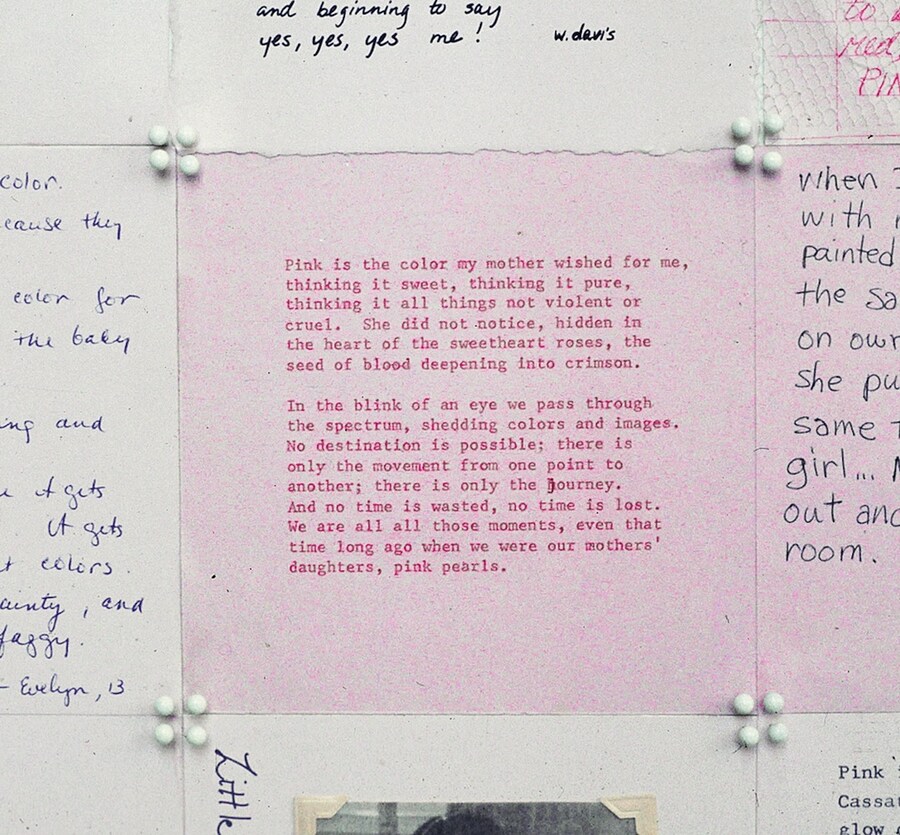 and beginning to say
yes, yes, yes me!
w. davis
to
red,
PIN
color.
ecause they
color for
the baby
ing and
it gets
It gets
colors.
ainty, and
faggy.
- Evelyn, 13
Pink is the color my mother wished for me,
thinking it sweet, thinking it pure,
thinking it all things not violent or
cruel. She did not notice, hidden in
the heart of the sweetheart roses, the
seed of blood deepening into crimson.
In the blink of an eye we pass through
the spectrum, shedding colors and images.
No destination is possible; there is
only the movement from one point to
another; there is only the journey.
And no time is wasted, no time is lost.
We are all all those moments, even that
time long ago when we were our mothers'
daughters, pink pearls.
When I
with
painted
the sa
on own
she pu
same t
girl...
out and
room.
Little
Pink
Cassat
glow